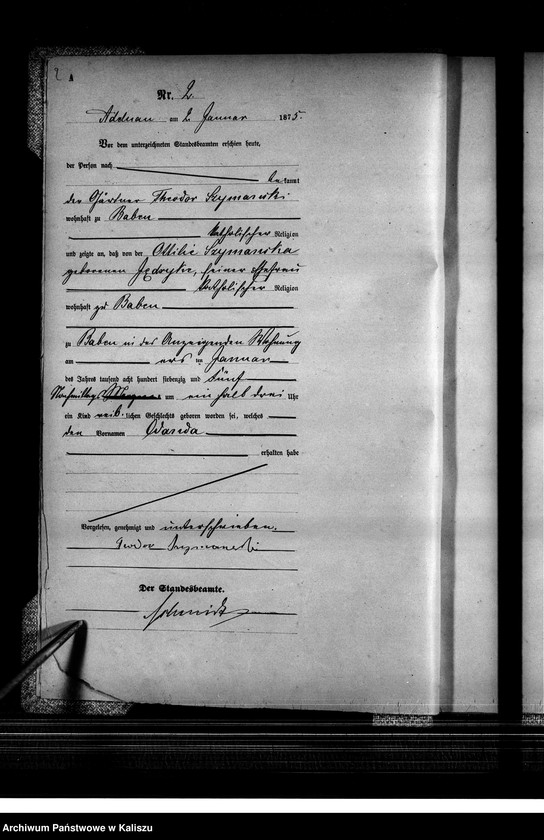 2 A
Nr. 2.
am 2. Januar 1875.
Vor dem unterzeichneten Standesbeamten erschien heute,
der Person nach
bekannt
der Gärtner Theodor Szymanski
wohnhaft zu Baben
katholischer Religion
und zeigte an, daß von der Ottilie Szymanska
geborenen seiner Ehefrau
katholischer Religion
wohnhaft zu Baben
zu Baben in des Anzeigenden Wohnung
am ersten Januar
des Jahres tausend acht hundert siebenzig und fünf
Nachmittags um ein halb drei Uhr
ein Kind weib lichen Geschlechts geboren worden sei, welches
den Vornamen
erhalten habe
Vorgelesen, genehmigt und unterschrieben.
Teodor Szymanski
Der Standesbeamte.
Schmidt
Archiwum Państwowe w Kaliszu